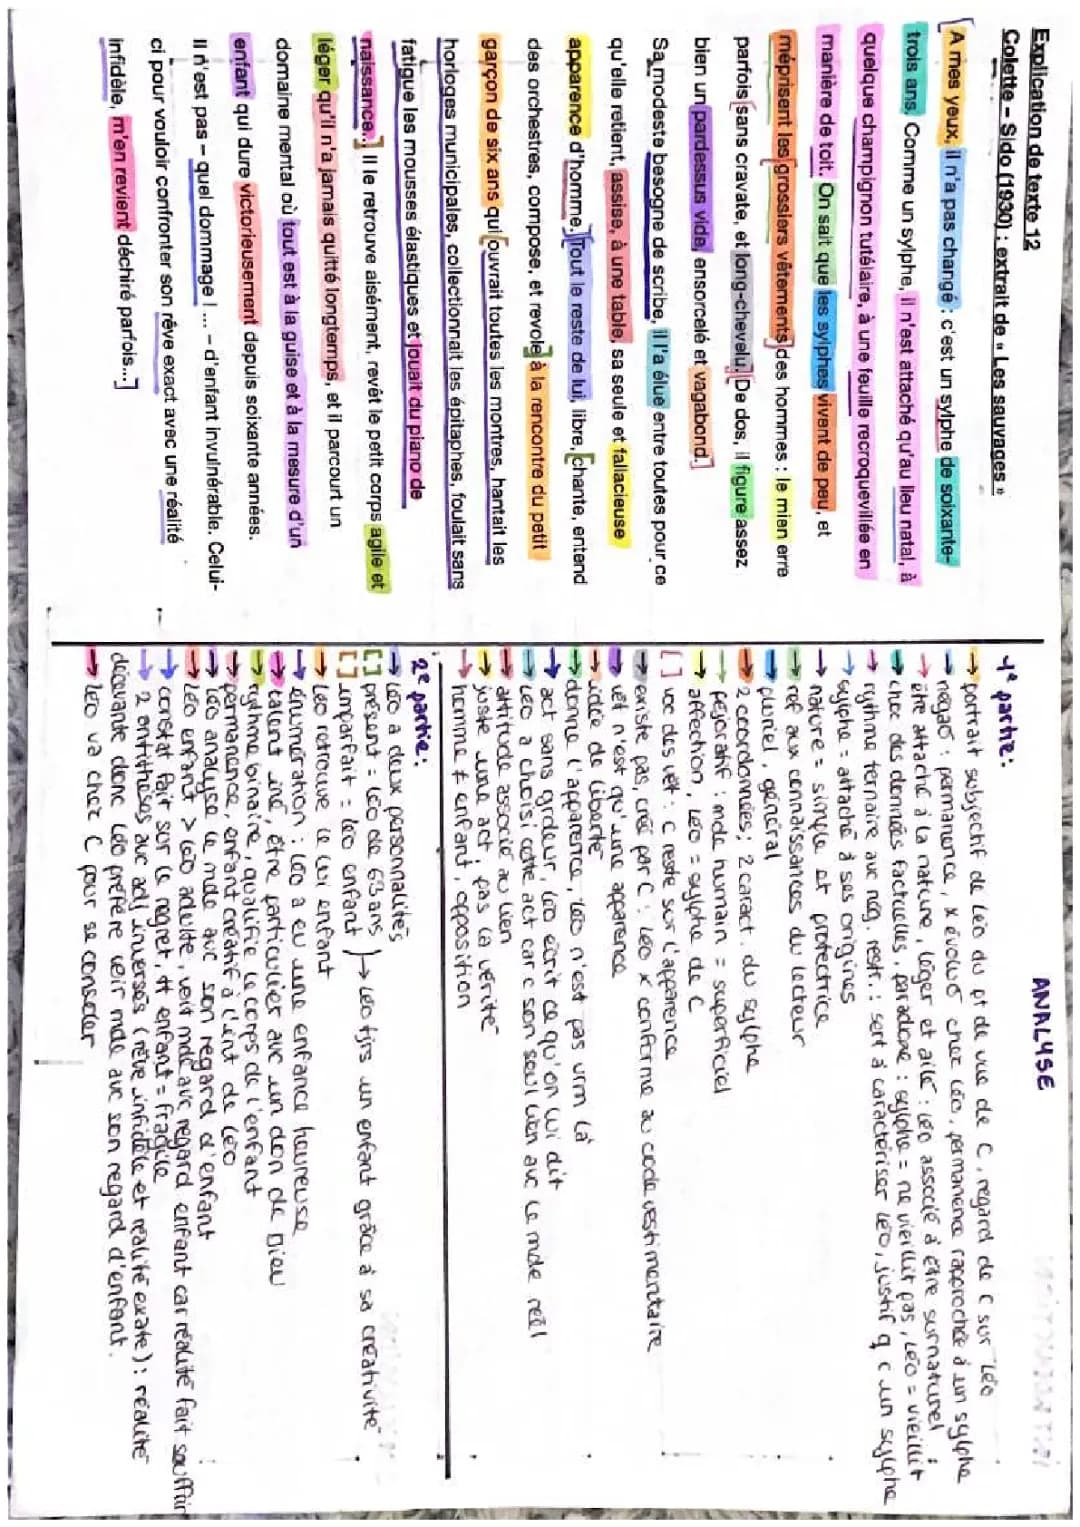 Explication de texte 12
Colette – Sido (1930) : extrait de « Les sauvages »
[A mes yeux, il n'a pas changé : c'est un sylphe de soixante-
trois ans. Comme un sylphe, il n'est attaché qu'au lieu natal, à
quelque champignon tutélaire, à une feuille recroquevillée en
manière de toit. On sait que les sylphes vivent de peu, et
méprisent les [grossiers vêtements] des hommes : le mien erre
parfois [sans cravate, et long-chevelu.] De dos, il figure assez
bien un [pardessus vide, ensorcelé et vagabond.]
Sa modeste besogne de scribe, il l'a élue entre toutes pour ce
qu'elle retient, assise, à une table, sa seule et fallacieuse
apparence d'homme. [Tout le reste de lui, libre, [chante, entend
des orchestres, compose, et revole] à la rencontre du petit
garçon de six ans qui [ouvrait toutes les montres, hantait les
horloges municipales, collectionnait les épitaphes, foulait sans
fatigue les mousses élastiques et jouait du piano de
naissance...] Il le retrouve aisément, revêt le petit corps agile et
léger qu'il n'a jamais quitté longtemps, et il parcourt un
domaine mental où tout est à la guise et à la mesure d'un
enfant qui dure victorieusement depuis soixante années.
Il n'est pas – quel dommage !... – d'enfant invulnérable. Celui-
ci pour vouloir confronter son rêve exact avec une réalité
infidèle, m'en revient déchiré parfois...]
ANALYSE
1e partie :
→ portrait subjectif de Léo du pt de vue de C, regard de C sur Léo
→ négat° : permanence, x évolué chez Léo, permanence rapprochée à un sylphe
→ être attaché à la nature, léger et ailé : Léo associé à être surnaturel
→ choc des données factuelles, paradoxe : sylphe = ne vieillit pas, Léo = vieillit
→ rythme ternaire avc nég. restr. : sert à caractériser Léo, justif q c un sylphe
→ sylphe = attaché à ses origines
→ nature = simple et protectrice
→ réf aux connaissances du lecteur
→ pluriel, général
→ 2 coordonnées ; 2 caract. du sylphe
→ péjoratif : mde humain = superficiel
→ affection, Léo = sylphe de C
[ ] voc des vêt : C reste sur l'apparence
→ existe pas, créé par C : Léo x conforme au code vestimentaire
→ vêt n'est qu'une apparence
→ idée de liberté
→ donne l'apparence, Léo n'est pas vrm là
→ act sans grdeur, Léo écrit ce qu'on lui dit
→ Léo a choisi cette act car c son seul lien avc le mde réel
→ attitude associé au lien
→ juste une act, pas la vérité
→ homme ≠ enfant, opposition
2e partie :
→ Léo a deux personnalités
[ ] présent = Léo de 63 ans
[ ] imparfait = Léo enfant
→ Léo tjrs un enfant grâce à sa créativité
→ Léo retrouve le lui enfant
→ énumération : Léo a eu une enfance heureuse
→ talent inné, être particulier avc un don de Dieu
→ rythme binaire, qualifie le corps de l'enfant
→ permanence, enfant créatif à l'int de Léo
→ Léo analyse le mde avc son regard d'enfant
→ Léo enfant > Léo adulte, voit mde avc regard enfant car réalité fait souffrir
→ constat fait sur le regret, tt enfant = fragile
→ 2 antithèses avc adj inversés (rêve infidèle et réalité exate) : réalité
décevante donc Léo préfère voir mde avc son regard d'enfant.
→ Léo va chez C pour se consoler